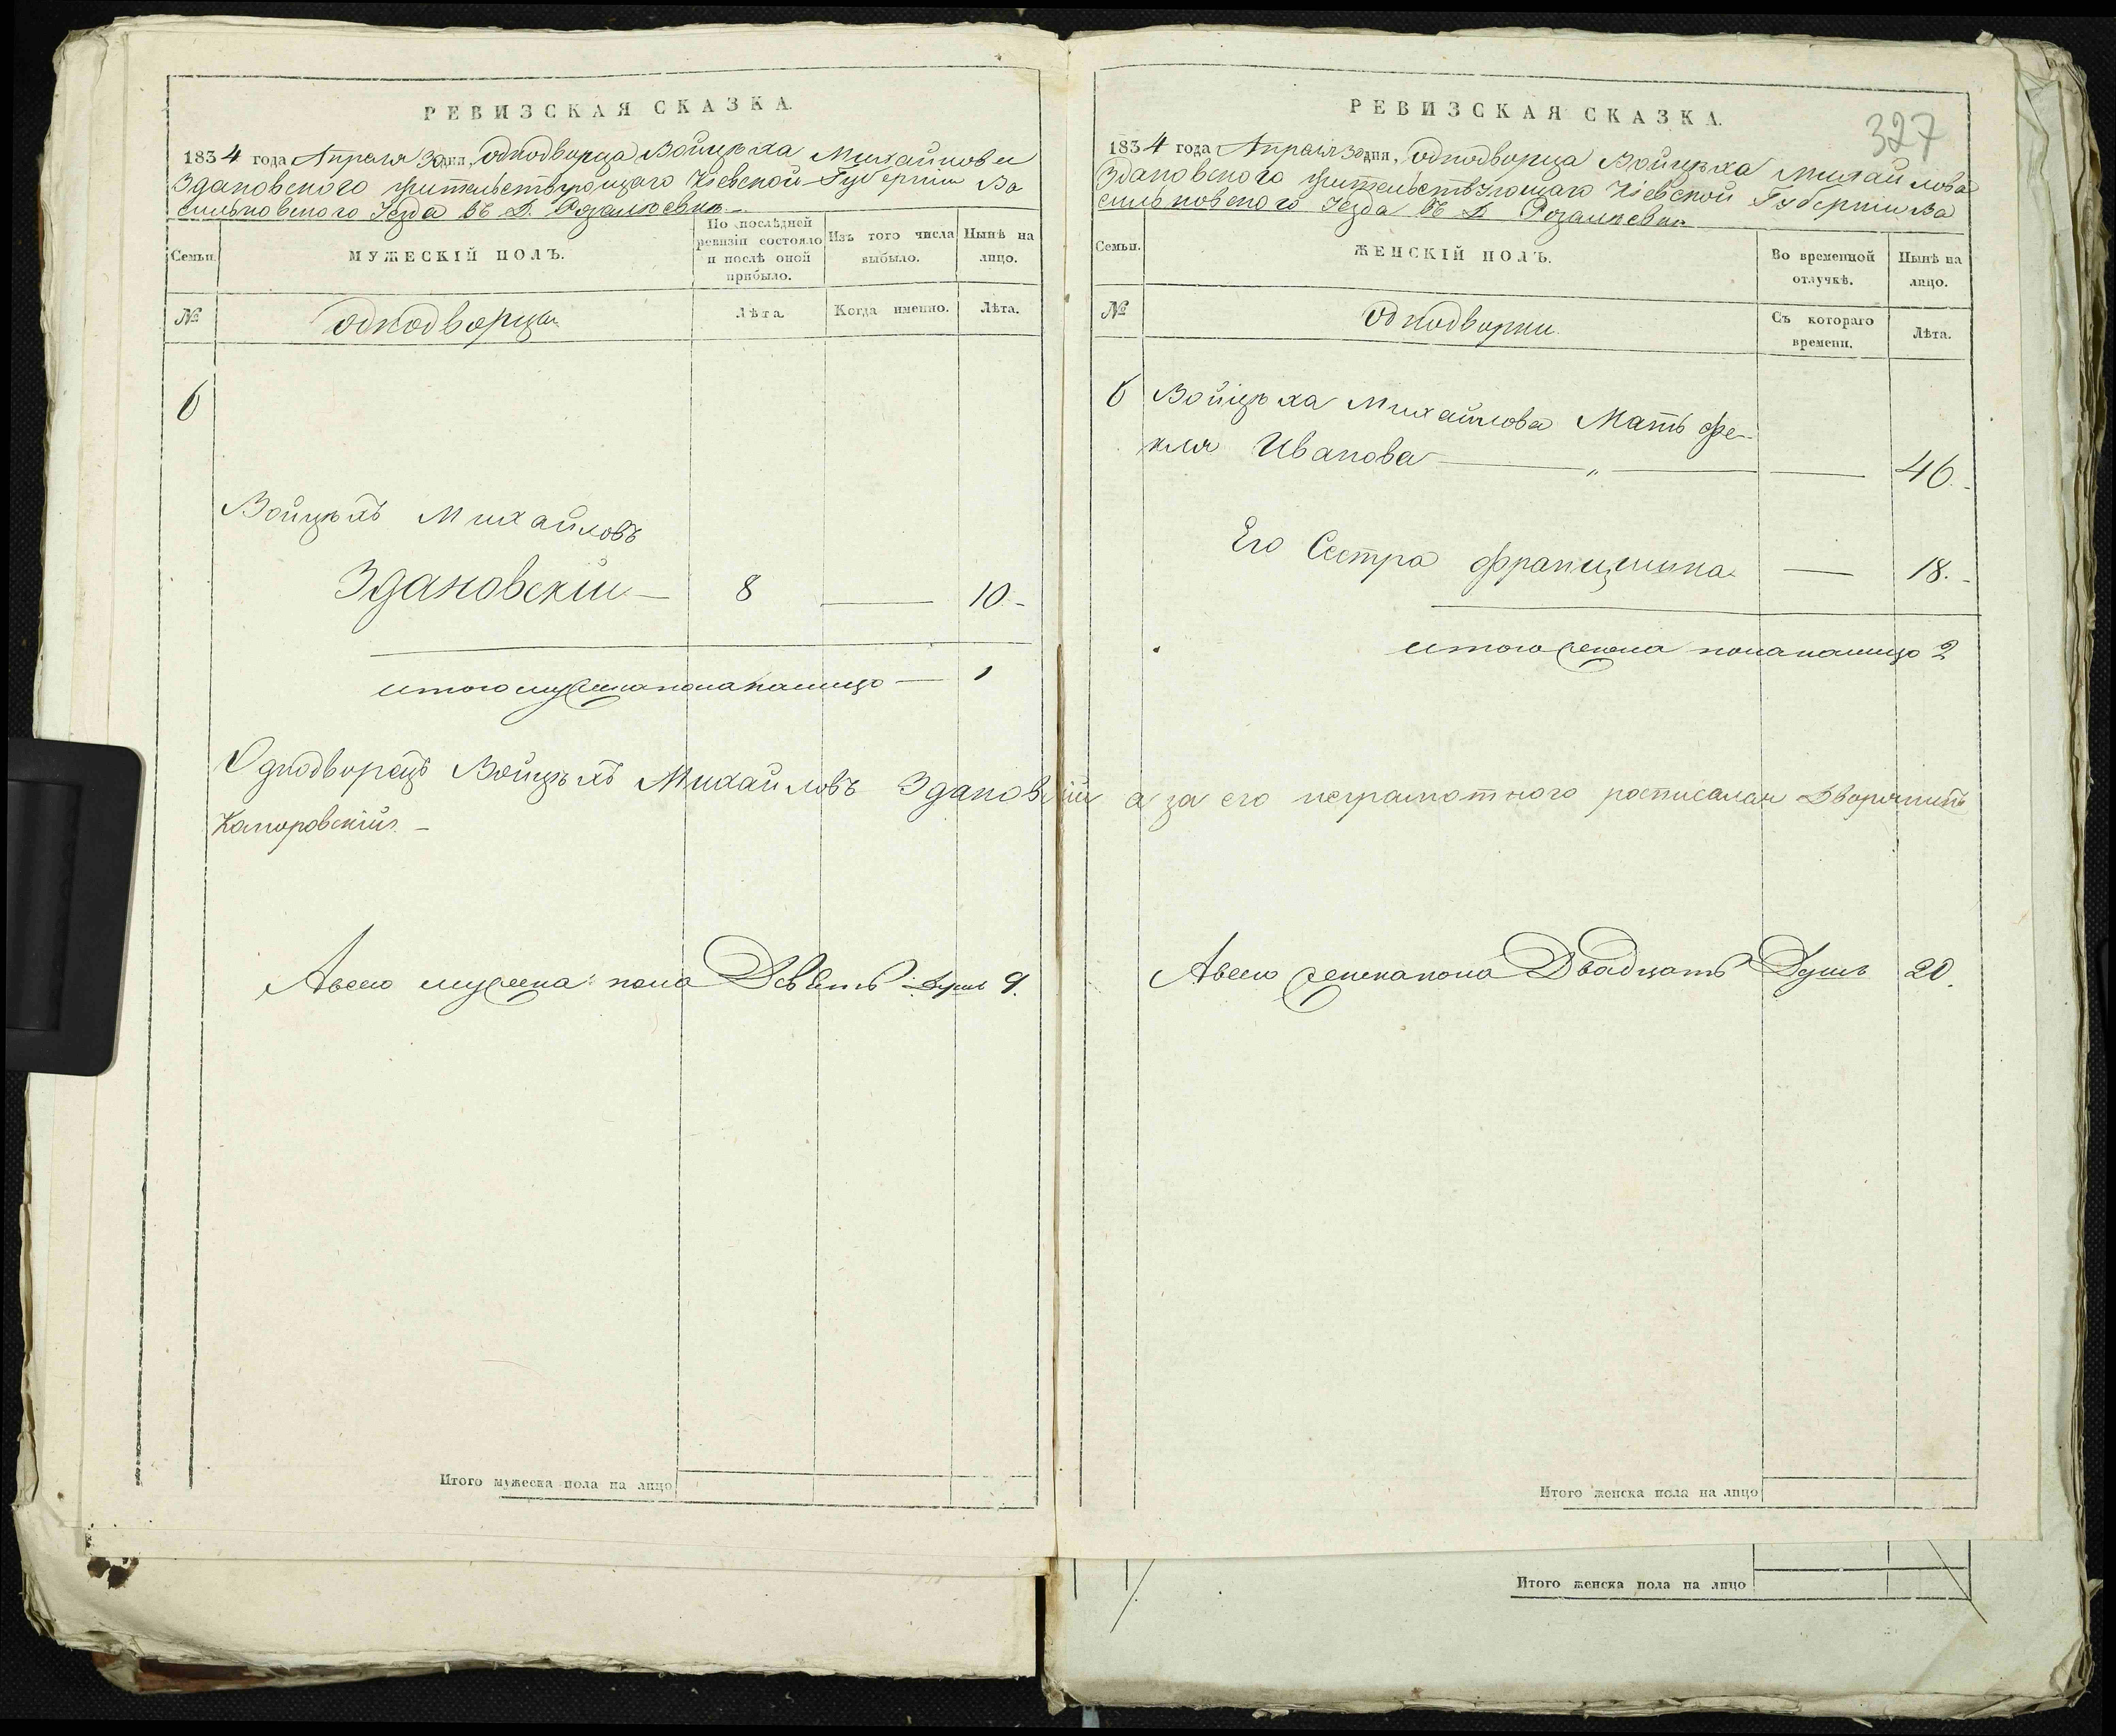 РЕВИЗСКАЯ СКАЗКА.
1834 года Апреля 30 дня, Однодворца Войцѣха Михайлова
Здановского жительствующаго Кіевской Губерніи Ва
сильковского Уезда въ Д. Розалиевки
Семьи.
МУЖЕСКІЙ ПОЛЪ.
По послѣдней
ревизіи состояло
и послѣ оной
прибыло.
Изъ того числа
выбыло.
Нынѣ на
лицо.
№
Однодворцы
Лѣта.
Когда именно.
Лѣта.
6
Войцѣхъ Михайловъ
Здановскій — 8 — 10 -
итого мужеска пола налицо — 1
Однодворецъ Войцѣхъ Михайловъ Здановскій а за его неграмотного росписался Дворянинъ
Коморовскій. –
А всего мужеска пола Девять Душъ 9.
Итого мужеска пола на лицо
РЕВИЗСКАЯ СКАЗКА.
327
1834 года Апреля 30 дня, Однодворца Войцѣха Михайлова
Здановского жительствующаго Кіевской Губерніи Ва
сильковского Уезда въ Д Розалиевки
Семьи.
ЖЕНСКІЙ ПОЛЪ.
Во временной
отлучкѣ.
Нынѣ на
лицо.
№
Однодворки
Съ котораго
времени.
Лѣта.
6 Войцѣха Михайлова Мать Фе-
кля Иванова — „ — — 46. -
Его Сестра Францишка — 18. -
итого женска пола налицо 2
А всего женска пола Двадцать Душъ 20.
Итого женска пола на лицо
Итого женска пола на лицо